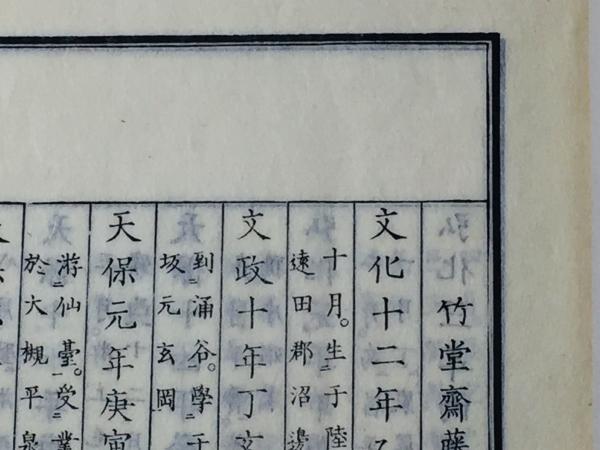 竹堂齋藤
文化十二年
十月。生于陸
遠田郡沼邊
文政十年丁
到涌谷。學于
坂元玄岡
天保元年庚寅
游仙臺。受業
於大槻平泉